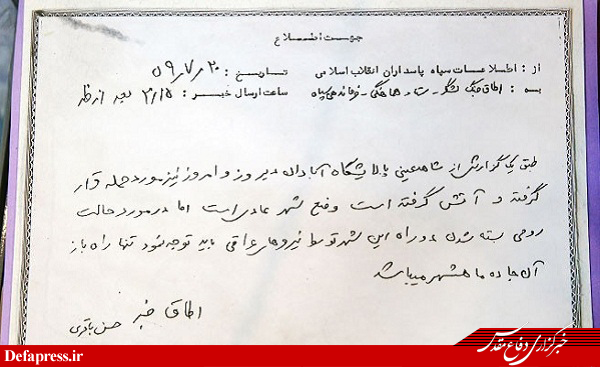 جهت اطلاع
از : اطلاعات سپاه پاسداران انقلاب اسلامی تاریخ : ۵۹/۷/۲۰
به : اطاق جنگ لشگر - ستاد هماهنگی - فرماندهی سپاه ساعت ارسال خبر : ۳/۱۵ بعد از ظهر
طبق یک گزارش از شاهد عینی پالایشگاه آبادان دیروز و امروز نیز مورد حمله قرار
گرفته و آتش گرفته است وضع شهر عادی است اما در مورد حالت
روحی بسته شدن دو راه این شهر توسط نیروهای عراقی باید توجه نمود تنها راه باز
آن جاده ماهشهر میباشد
اطاق خبر حسن باقری
خبرگزاری دفاع مقدس
Defapress.ir